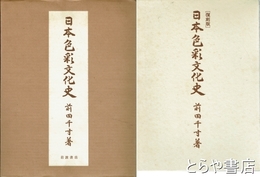 日本色彩文化史
前田千寸著
岩波書店
復刻版
日本色彩文化史
前田千寸著
とらや書店